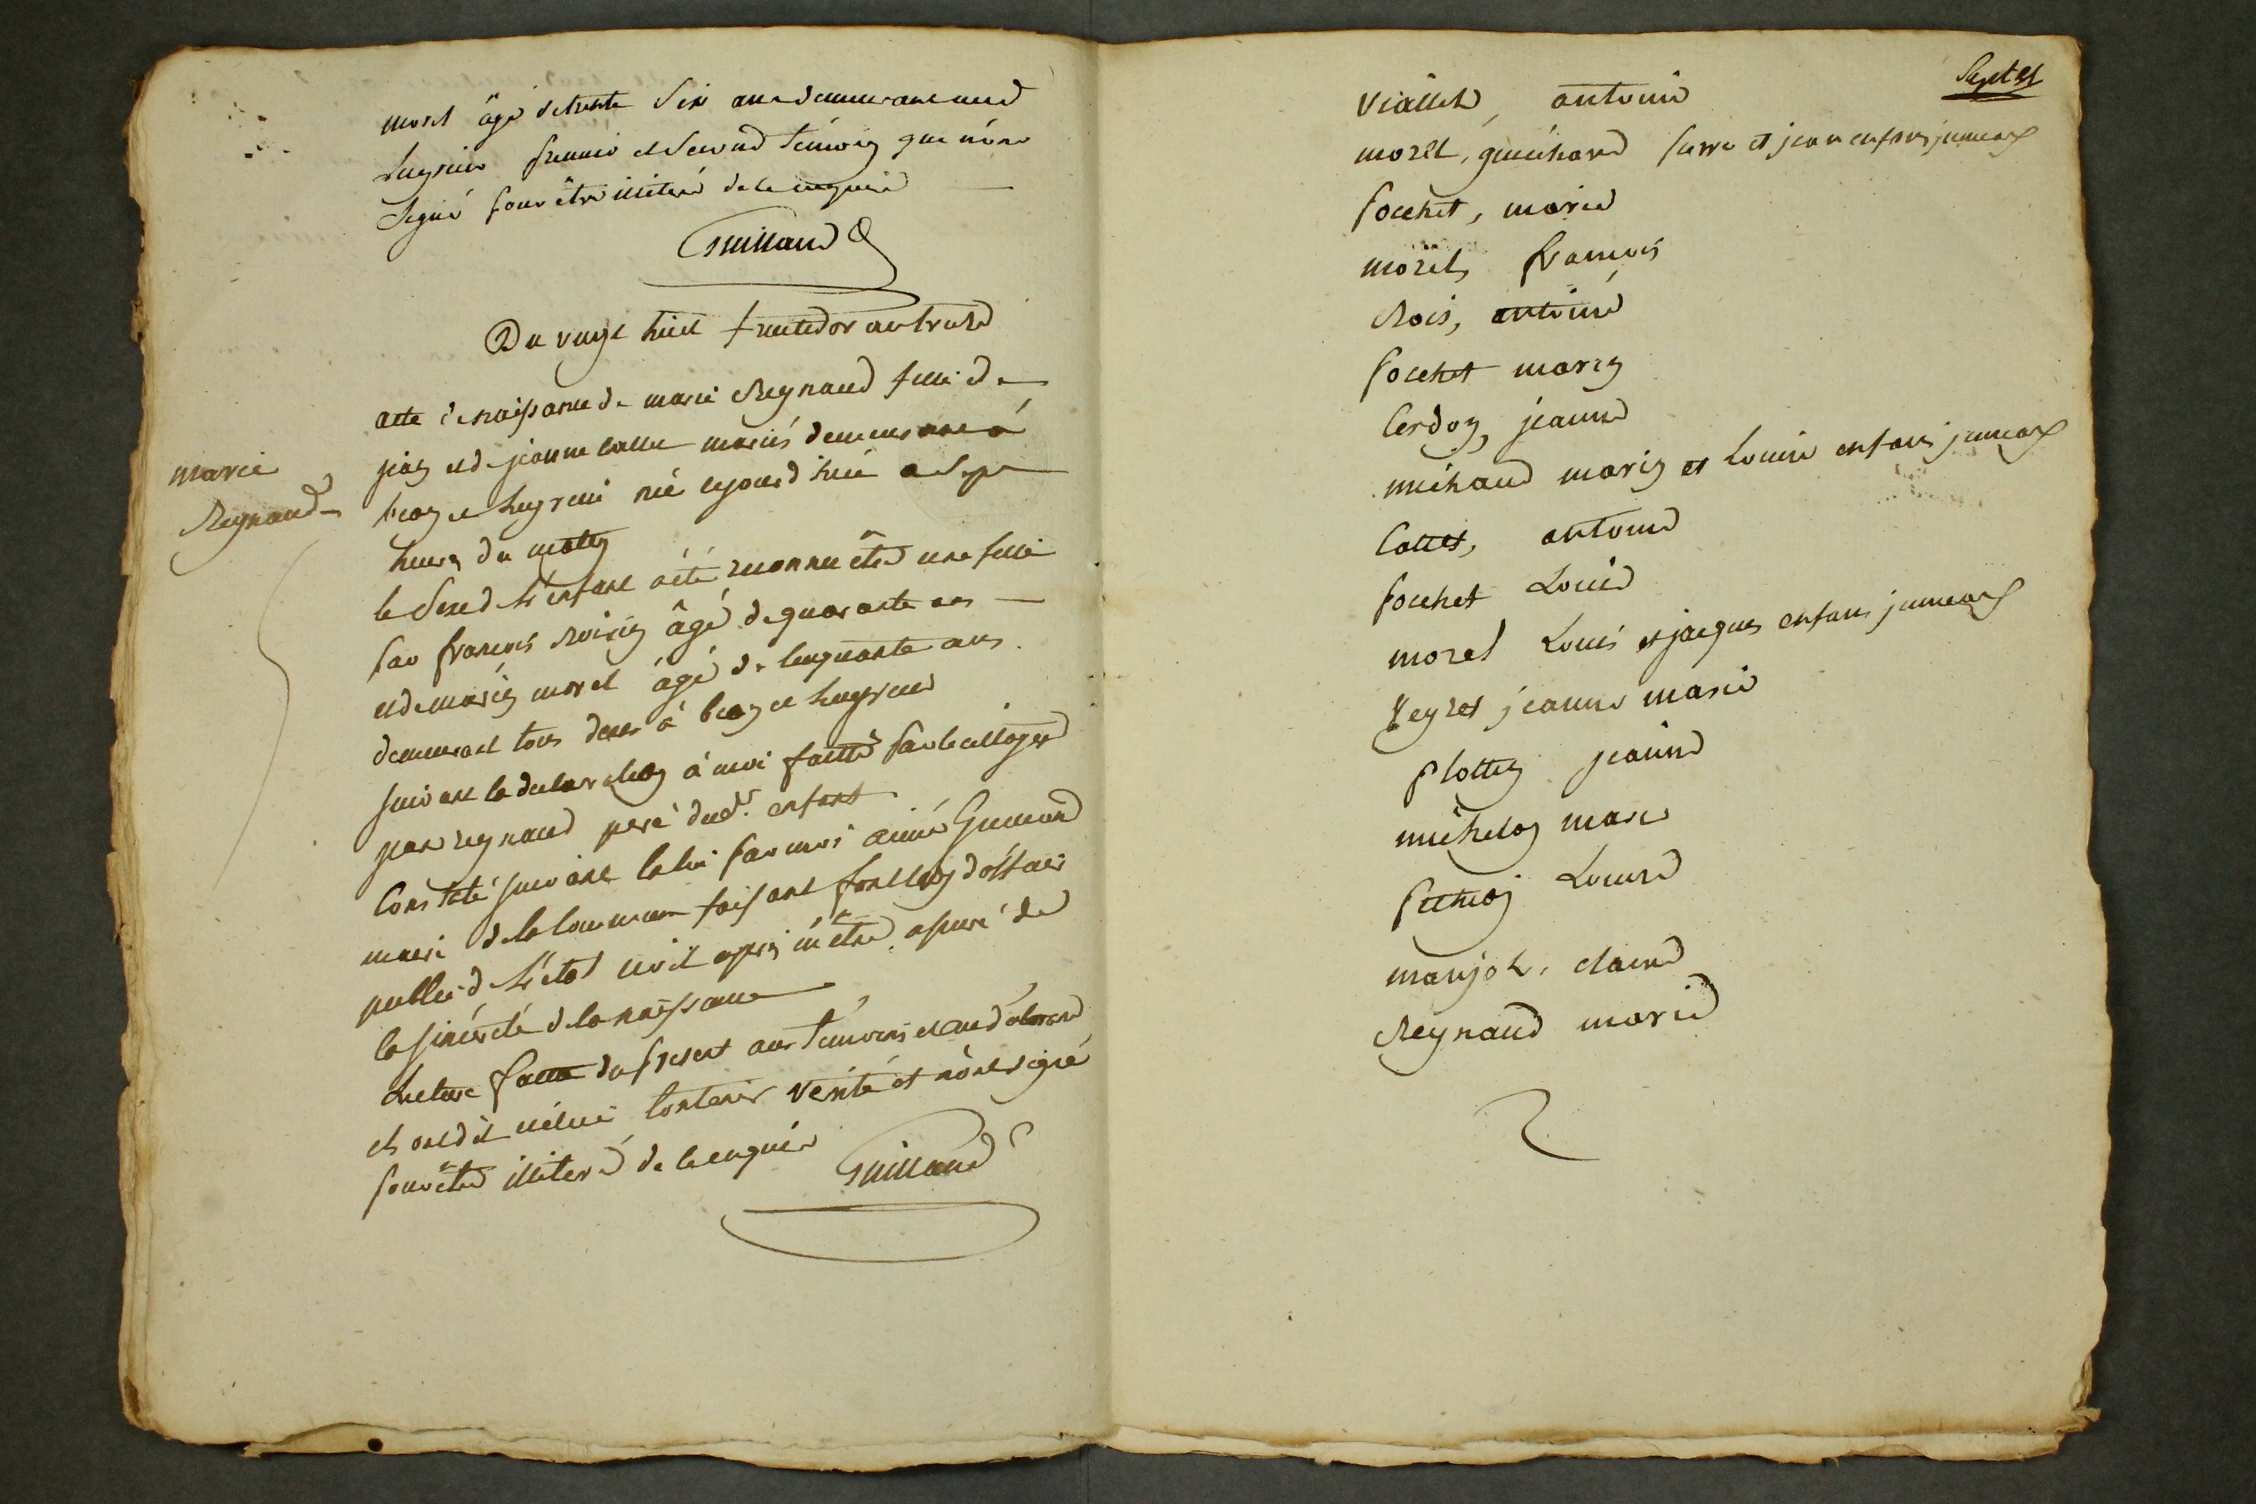 morel âgé de trente six ans demeurant aud
Leyrieu premier et second témoins que nont
signé pour être illiteré de ce enquiré
Guillaud
Du vingt huit fructidor an treize
acte de naissance de marie Reynaud fille de
jean et de jeanne mariés demeurant à
marie
Reynaud
Leyrieu née aujourd'hui a sept
heures du matin
le sexe de l'enfant a été reconnu être une fille
par françois âgé de quarante ans
et de morel âgé de cinquante ans
demeurant tous deux à Leyrieu
suivant la declaration à moi faitte par le
jean reynaud pere dud. enfant
Constaté suivant la loi par moi aimé
maire de la commune faisant fonction d'officier
public de l'état civil après m'être assuré de
la sincérité de la naissance
Lecture faitte du present aux témoins et au déclarant
et ont dit icelui contenir verité et n'ont signé
pour être illiteré de ce enquis
Guillaud
Sept et
viallet, antoine
morel, guichard pierre et jean enfans jumeaux
pochet, marie
morel, françois
Rois, antoine
pochet marie
Cerdon, jeanne
michaud marie et Louise enfans jumeaux
Cottet, antoine
pochet Louis
morel Louis et jacques enfans jumeaux
Veyret jeanne marie
plottin jeanne
michelon marie
Louise
manjot, claire
Reynaud marie